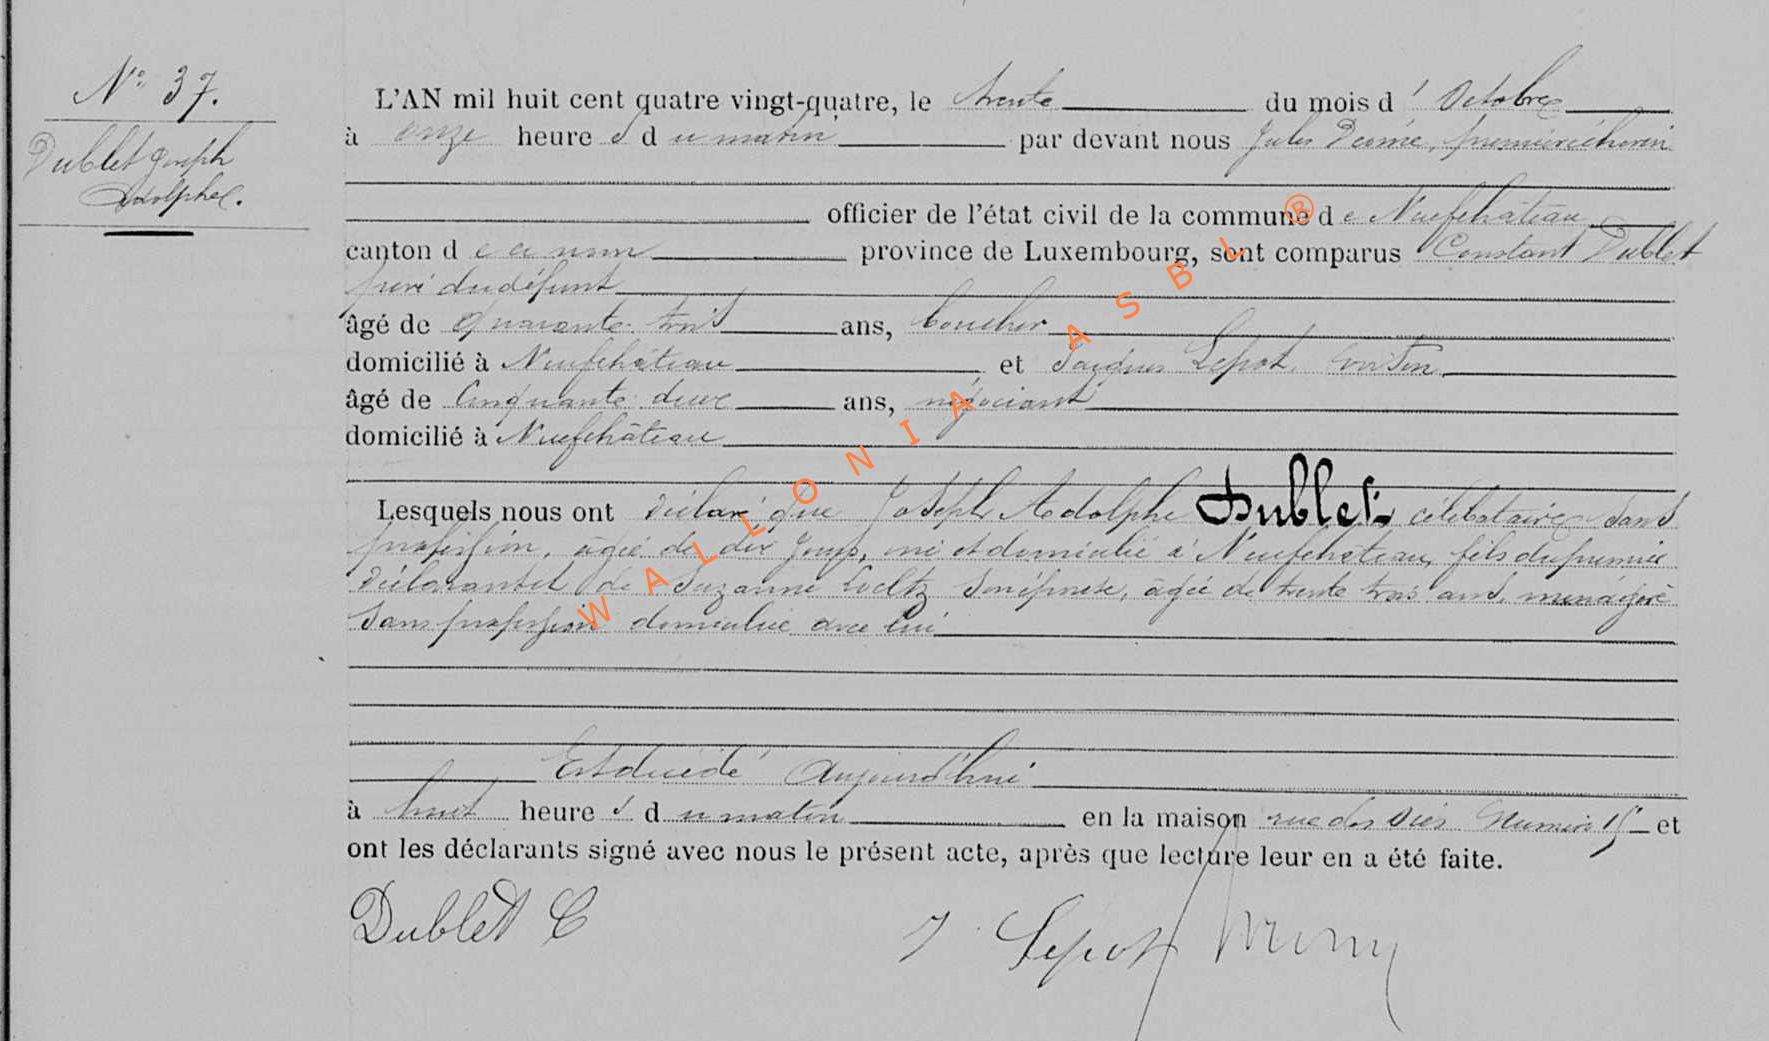 N° 37.
Dublet Joseph
Adolphe.
L'AN mil huit cent quatre vingt-quatre, le trente du mois d' Octobre
à onze heures du matin par devant nous Jules premier échevin
officier de l'état civil de la commune de Neufchâteau
canton de ce nom province de Luxembourg, sont comparus Constant Dublet
père du défunt
âgé de quarante trois ans, boucher
domicilié à Neufchâteau et Jacques Lepot, voisin
âgé de Cinquante deux ans, négociant
domicilié à Neufchâteau
Lesquels nous ont déclaré que Joseph Adolphe Dublet célibataire sans
profession, âgé de dix jours, né et domicilié à Neufchâteau, fils du premier
déclarant et de Suzanne Weltz son épouse, âgée de trente trois ans, ménagère
sans profession domiciliée avec lui
Est décédé aujourd'hui
à huit heures du matin en la maison rue des numéro 15 et
ont les déclarants signé avec nous le présent acte, après que lecture leur en a été faite.
Dublet C
J Lepot
WALLONIA ASBL ®